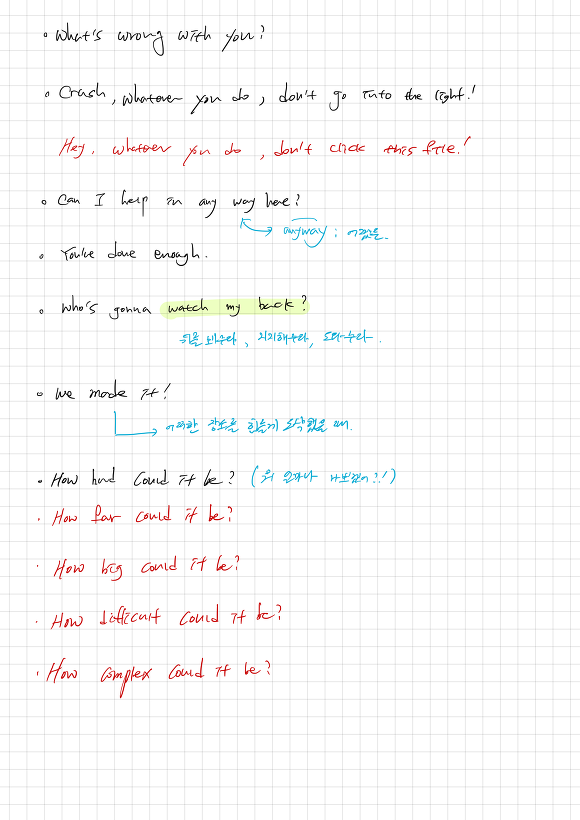 • What's wrong with you?
• Crash, whatever you do, don't go into the light!
Hey, whatever you do, don't click this file!
• Can I help in any way here?
anyway : 어쨌든.
• You've done enough.
• Who's gonna watch my back?
뒤를 봐주다, 지지해주다, 도와주다.
• We made it!
어떠한 장소를 힘들게 도착했을 때.
• How hard could it be? (뭐 얼마나 나쁘겠어?!)
• How far could it be?
• How big could it be?
• How difficult could it be?
• How complex could it be?